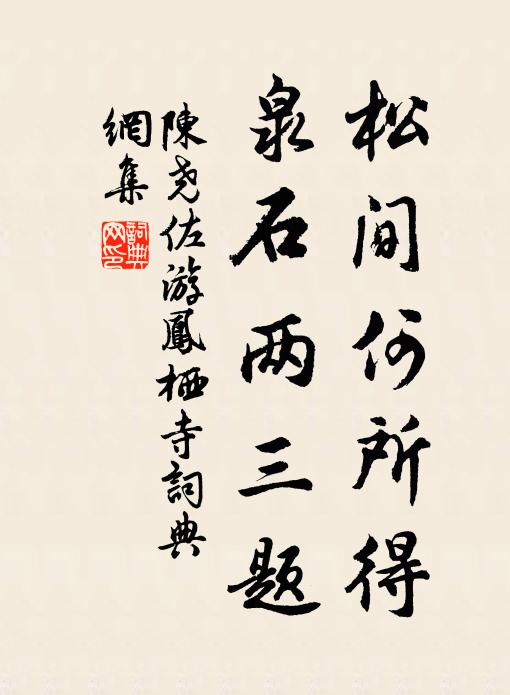 松间何所得
泉石两三题
陳尧佐游鳳栖寺詞典
網集
詞典网印